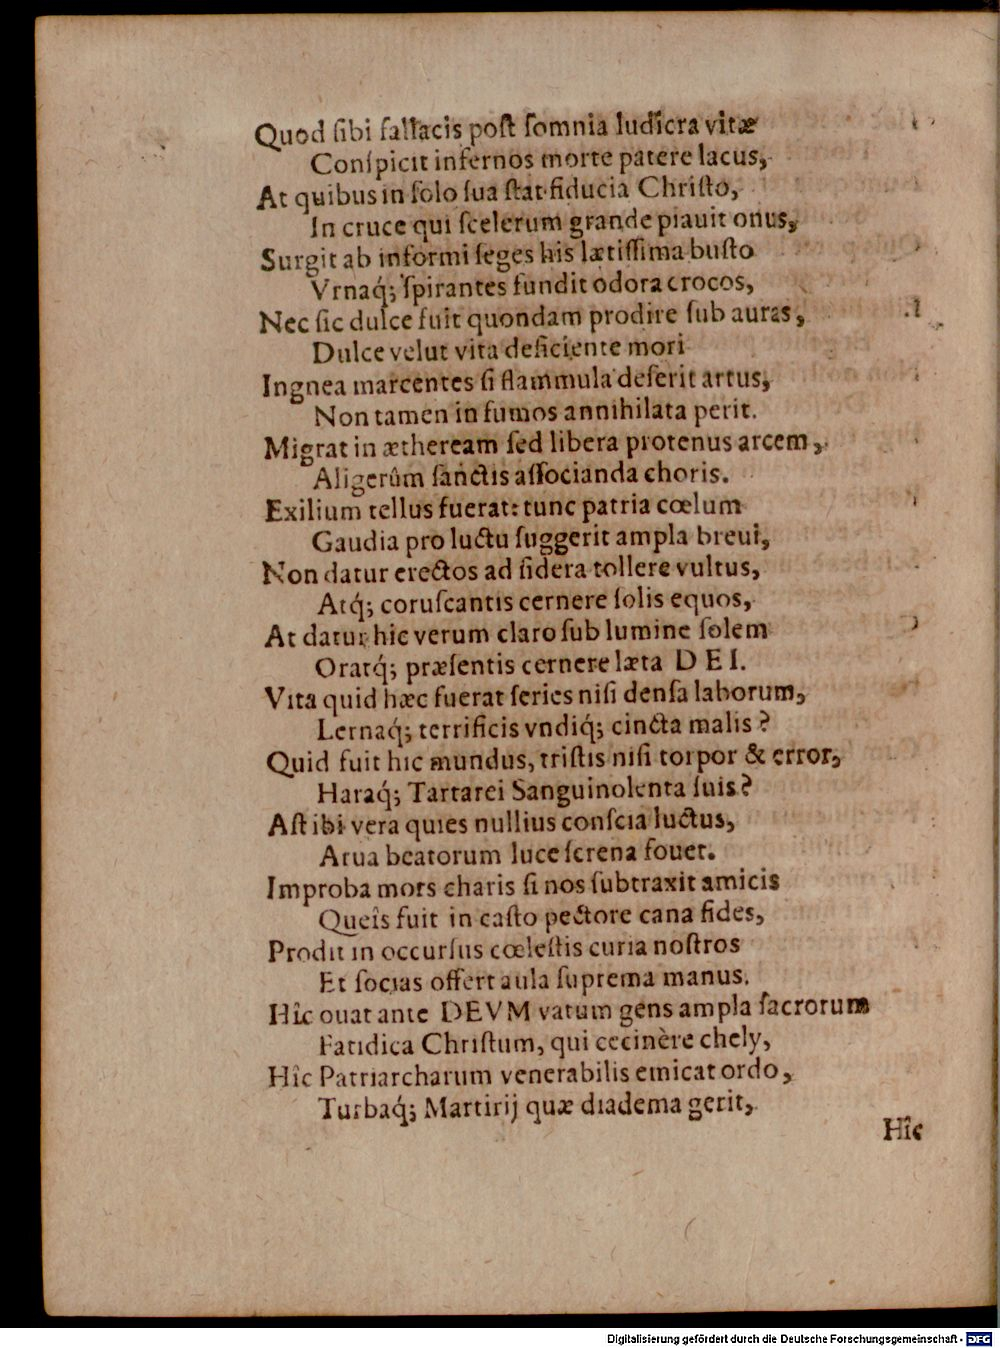 Quod ſibi fallacis poſt ſomnia ludicra vitæ
Conſpicit infernos morte patere lacus,
At quibus in ſolo ſua ſtat fiducia Chriſto,
In cruce qui ſcelerum grande piauit onus,
Surgit ab informi ſeges his lætiſſima buſto
Vrnaq́; ſpirantes fundit odora crocos,
Nec ſic dulce fuit quondam prodire ſub auras,
Dulce velut vita deficiente mori
Ingnea marcentes ſi flammula deſerit artus,
Non tamen in fumos annihilata perit.
Migrat in ætheream ſed libera protenus arcem,
Aligerûm ſanctis aſſocianda choris.
Exilium tellus fuerat: tunc patria cœlum
Gaudia pro luctu ſuggerit ampla breui,
Non datur erectos ad ſidera tollere vultus,
Atq́; coruſcantis cernere ſolis equos,
At datur hic verum claro ſub lumine ſolem
Oraq́; præſentis cernere læta DEI.
Vita quid hæc fuerat ſeries niſi denſa laborum,
Lernaq́; terrificis vndiq́; cincta malis?
Quid fuit hic mundus, triſtis niſi torpor & error,
Haraq́; Tartarei Sanguinolenta ſuis?
Aſt ibi vera quies nullius conſcia luctus,
Atua beatorum luce ſerena fouet.
Improba mors charis ſi nos ſubtraxit amicis
Queîs fuit in caſto pectore cana fides,
Prodit in occurſus cœleſtis curia noſtros
Et ſocias offert aula ſuprema manus.
Hîc ouat ante DEVM vatum gens ampla ſacrorum
Fatidica Chriſtum, qui cecinère chely,
Hîc Patriarcharum venerabilis emicat ordo,
Turbaq́; Martirij quæ diadema gerit,
Hîc
Digitalisierung gefördert durch die Deutsche Forschungsgemeinschaft - DFG